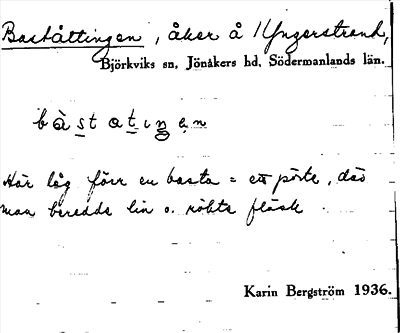 Baståttingen, åker å Yngerstrand,
Björkviks sn, Jönåkers hd, Södermanlands län.
Här låg förr en basta = ett pörte, där
man beredde lin o. rökte fläsk
Karin Bergström 1936.